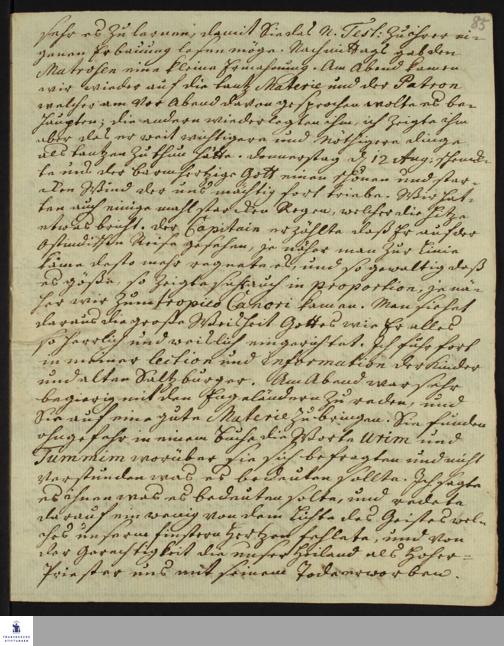 85
sehr es zu lernen, damit Sie das N. Test. zu ihrer ei-
genen Erbauung lesen möge. Nachmittags gab den
Matrosen eine kleine Ermahnung. Am Abend kamen
wir wieder auf die tantz Materie und der Patron
welcher am Vor Abend davon gesprochen wolte es be-
haupten; die andern wiederlegten ihn, ich zeigte ihm
aber das er weit wichtigere und Nöthigere dinge
als tantzen zu thun hätte. Donnerstag d. 12 Aug: schenck-
te uns der barmhertzige Gott einen schönen und star-
cken Wind der uns mächtig fort triebe. Wir hat-
ten auch einige mahl starcken Regen, welcher die Hitze
etwas brach. der Capitain erzählte daß Er auf der
Ostindischen Reise gesehen, je näher man zur Linie
käme desto mehr regnete es, und so gewaltig daß
es göße, so zeigte sichs auch in proportion, je nä-
her wir zum tropico Cancri kamen. Man siehet
daraus die große Weisheit Gottes wie Er alles
so herrlich und weislich eingerichtet. Ich fuhr fort
in meiner lection und Information der Kinder
und alten Saltzburger. Am Abend war sehr
begierig mit den Engeländern zu reden, und
Sie auf eine gute Materie zu bringen. Sie funden
ohngefehr in einem Buche die Worte Urim und
Tummim worüber sie sich befragten und nicht
verstunden was es bedeuten sollte. Ich sagte
es ihnen was es bedeuten solte, und redete
darauf ein wenig von dem Lichte des Geistes wel-
ches unserm finstern Hertzen fehlete, und von
der Gerechtigkeit die unser Heiland als Hoher-
Priester uns mit seinem Tode erworben.
FRANCKESCHE
STIFTUNGEN